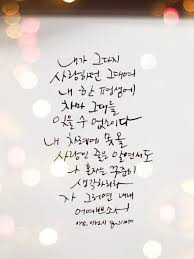 내가 그다지
사랑하던 그대여
내 한 평생에
차마 그대를
잊을 수 없소이다
내 차례에 못올
사랑인 줄은 알면서도
나 혼자는 꾸준히
생각하리라
자 그러면 내내
어여쁘소서